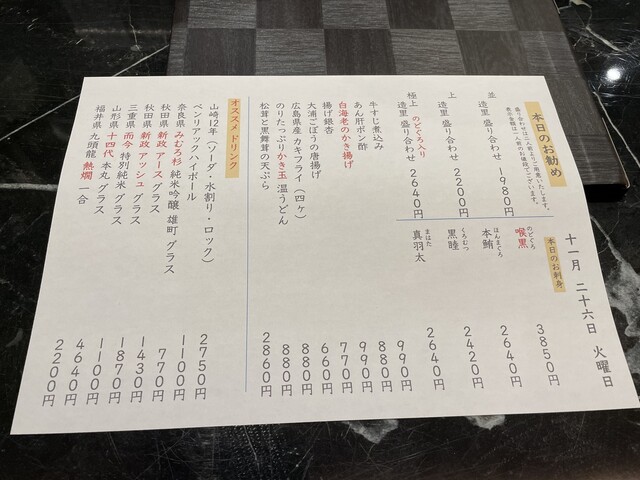 十一月 二十六日 火曜日
本日のお勧め
盛り合わせは二人前よりご用意いたします。
表示金額は一人前のお値段でございます。
並
造里盛り合わせ 1980円
上
造里盛り合わせ 2200円
極上 のどぐろ入り
造里盛り合わせ 2640円
本日のお刺身
のどぐろ
喉黒 3850円
ほんまぐろ
本鮪 2640円
くろむつ
黒睦 2420円
まはた
真羽太 2640円
牛すじ煮込み 990円
あん肝ポン酢 880円
白海老のかき揚げ 990円
揚げ銀杏 770円
大浦ごぼうの唐揚げ 660円
広島県産カキフライ（四ヶ） 880円
のりたっぷりかき玉 温うどん 880円
松茸と黒舞茸の天ぷら 2860円
オススメドリンク
山崎12年（ソーダ・水割り・ロック） 2750円
ベンリアックハイボール 1100円
奈良県 みむろ杉 純米吟醸 雄町 グラス 770円
秋田県 新政 アース グラス 1430円
秋田県 新政 アッシュ グラス 1870円
三重県 而今 特別純米 グラス 1100円
山形県 十四代 本丸 グラス 4640円
福井県 九頭龍 熱燗 一合 2200円